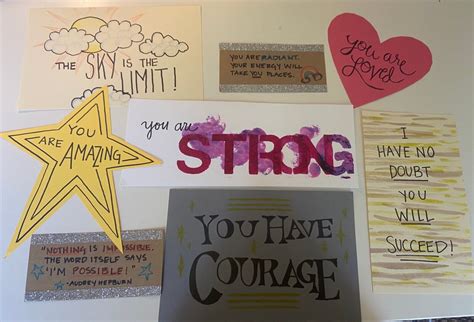 THE SKY IS THE
LIMIT!
YOU ARE RADIANT.
YOUR ENERGY WILL
TAKE YOU PLACES.
you are
Loved
YOU
ARE AMAZING
you are
STRONG
I
HAVE NO
DOUBT
YOU
WILL
SUCCEED!
"NOTHING IS IMPOSSIBLE.
THE WORD ITSELF SAYS
'I'M POSSIBLE!'"
-AUDREY HEPBURN
YOU HAVE
COURAGE